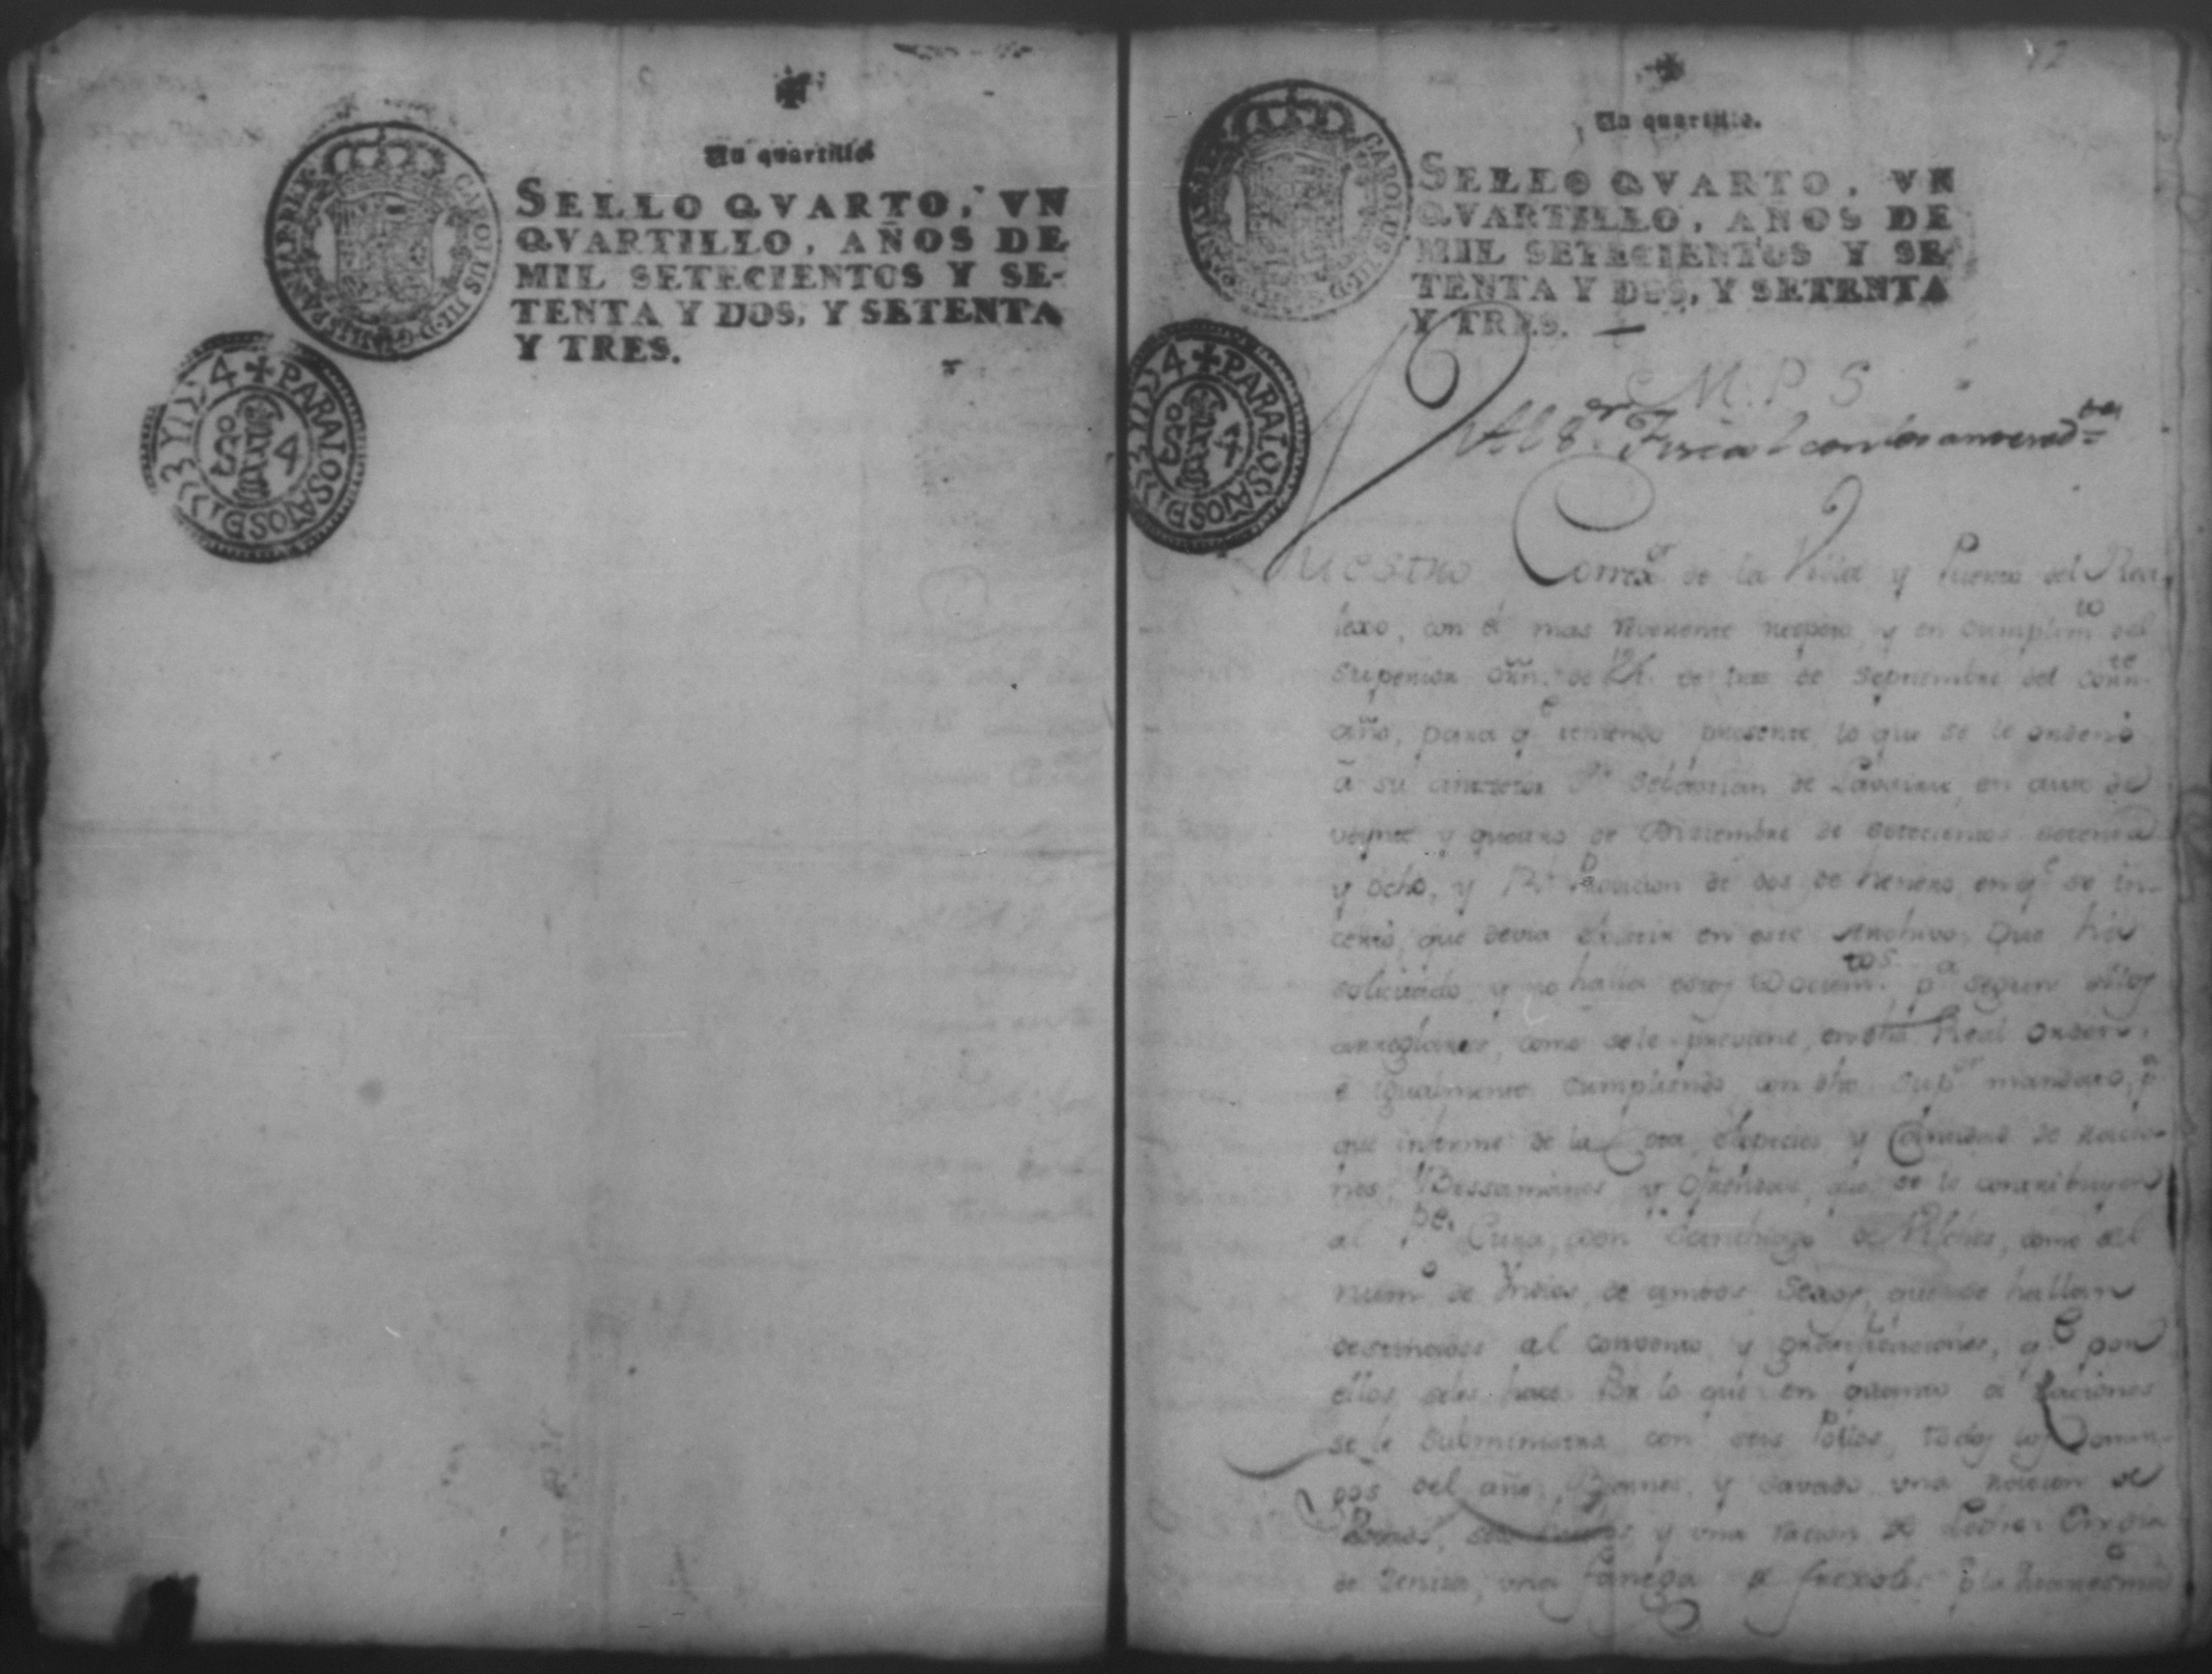 Un quartillo
SELLO QVARTO, VN
QVARTILLO, AÑOS DE
MIL SETECIENTOS Y SE-
TENTA Y DOS, Y SETENTA
Y TRES.
CAROLUS III D G HISPANIAR REX
PARA LOS AÑOS D
S 4
42
Un quartillo.
SELLO QVARTO, VN
QVARTILLO, AÑOS DE
MIL SETECIENTOS Y SE-
TENTA Y DOS, Y SETENTA
Y TRES.
CAROLUS III D
PARA LOS AÑOS D
S 4
M. P. S
Al Sr. Fiscal con los
Vuestro Correxor de la Villa y Puerto del Rea
lexo, con el mas reverente respeto, y en cumplimto del
Superior orñ. de de tres de Septiembre del corrte
año, para qe teniendo presente lo que se le ordenó
â su antesesor Dn Sebastian de en auto de
veynte y quatro de Diziembre de setecientos sesenta
y ocho, y Rl Provicion de dos de Henero, en qe se in-
certó, que devia existir en este Archivo. Que há
solicitado, y no halla estos Documtos pa segun ellos
arreglarse, como se le previene, en dha Real orden.
e Ygualmente cumpliendo con dho supor mandato, pa
que informe de la Especies, y Cantidad de racio-
nes, Bessamanos y ofrendas, que se le contribuyen
al Pe. Cura, Don de Vilches, como del
numo de Yndios, de ambos Sexos, que se hallan
destinados al convento y gratificaciones, qe por
ellos seles hace. Por lo que en quanto â Raciones
se le subministra con seis Pollos, todos los Domin-
gos del año, Biernes, y Savado una racion de
y una racion de
de Seniza, una fanega de frixoles pa la Quaresma